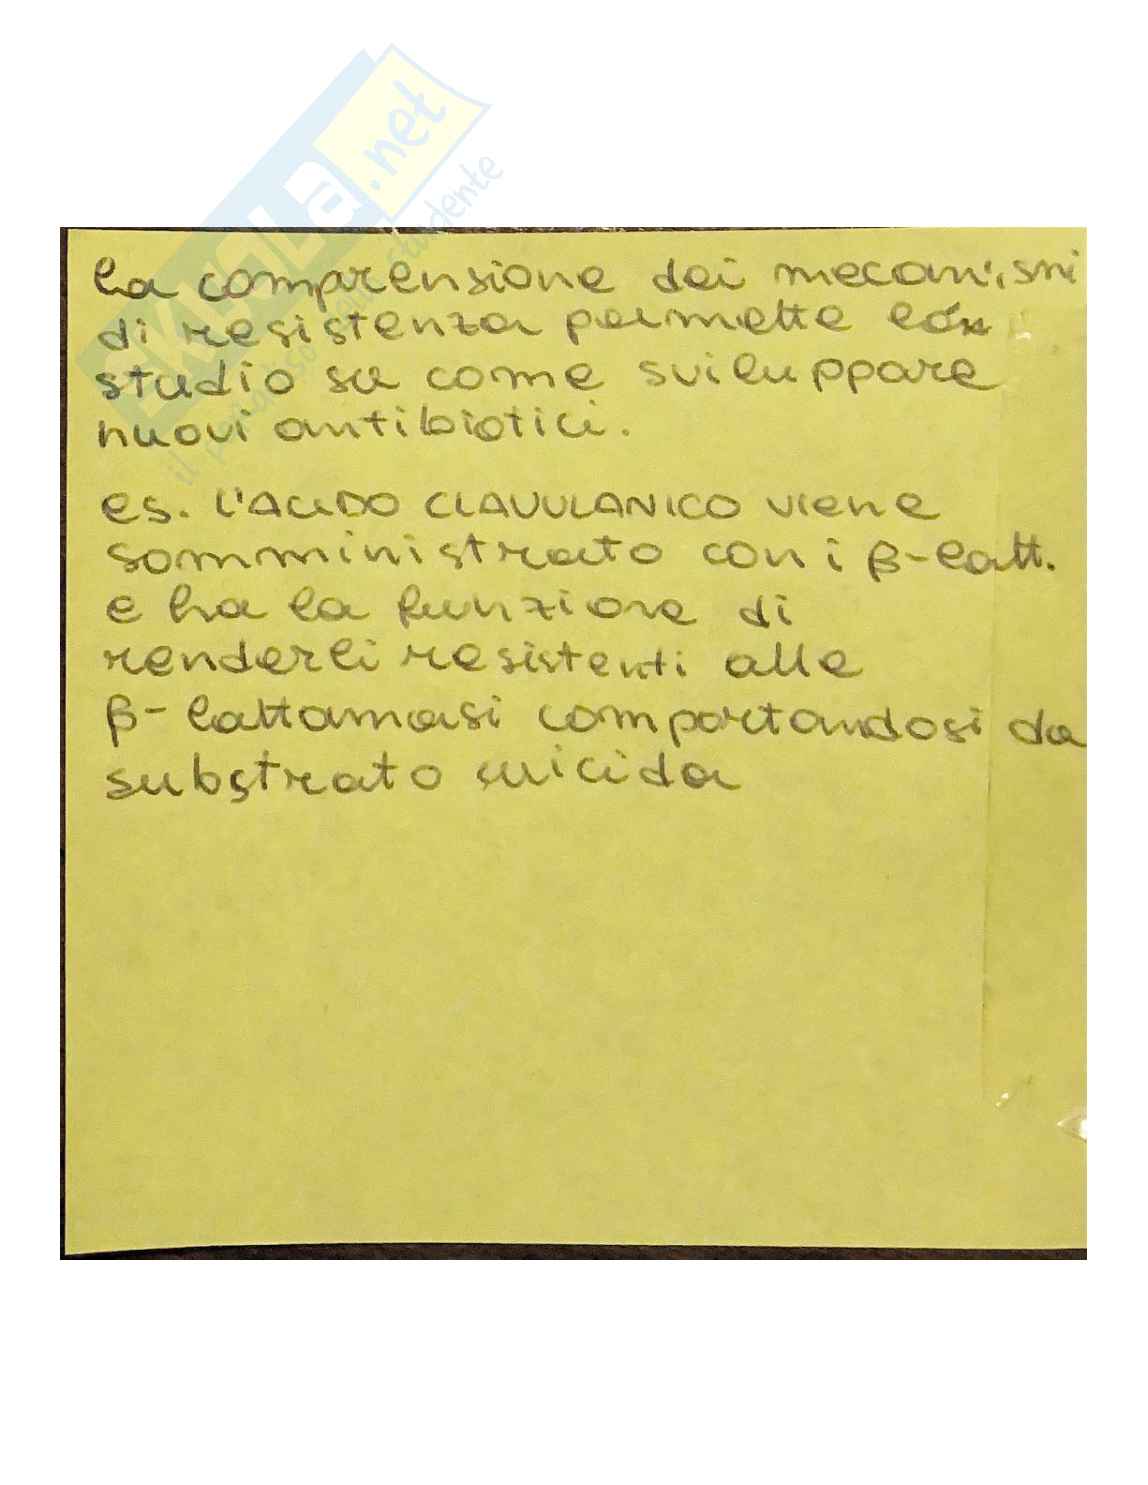 SKUOLA.net
il paradiso dello studente
la comprensione dei mecanismi
di resistenza permette lo
studio su come sviluppare
nuovi antibiotici.
es. L'ACIDO CLAVULANICO viene
somministrato con i β-latt.
e ha la funzione di
renderli resistenti alle
β-lattamasi comportandosi da
substrato suicida